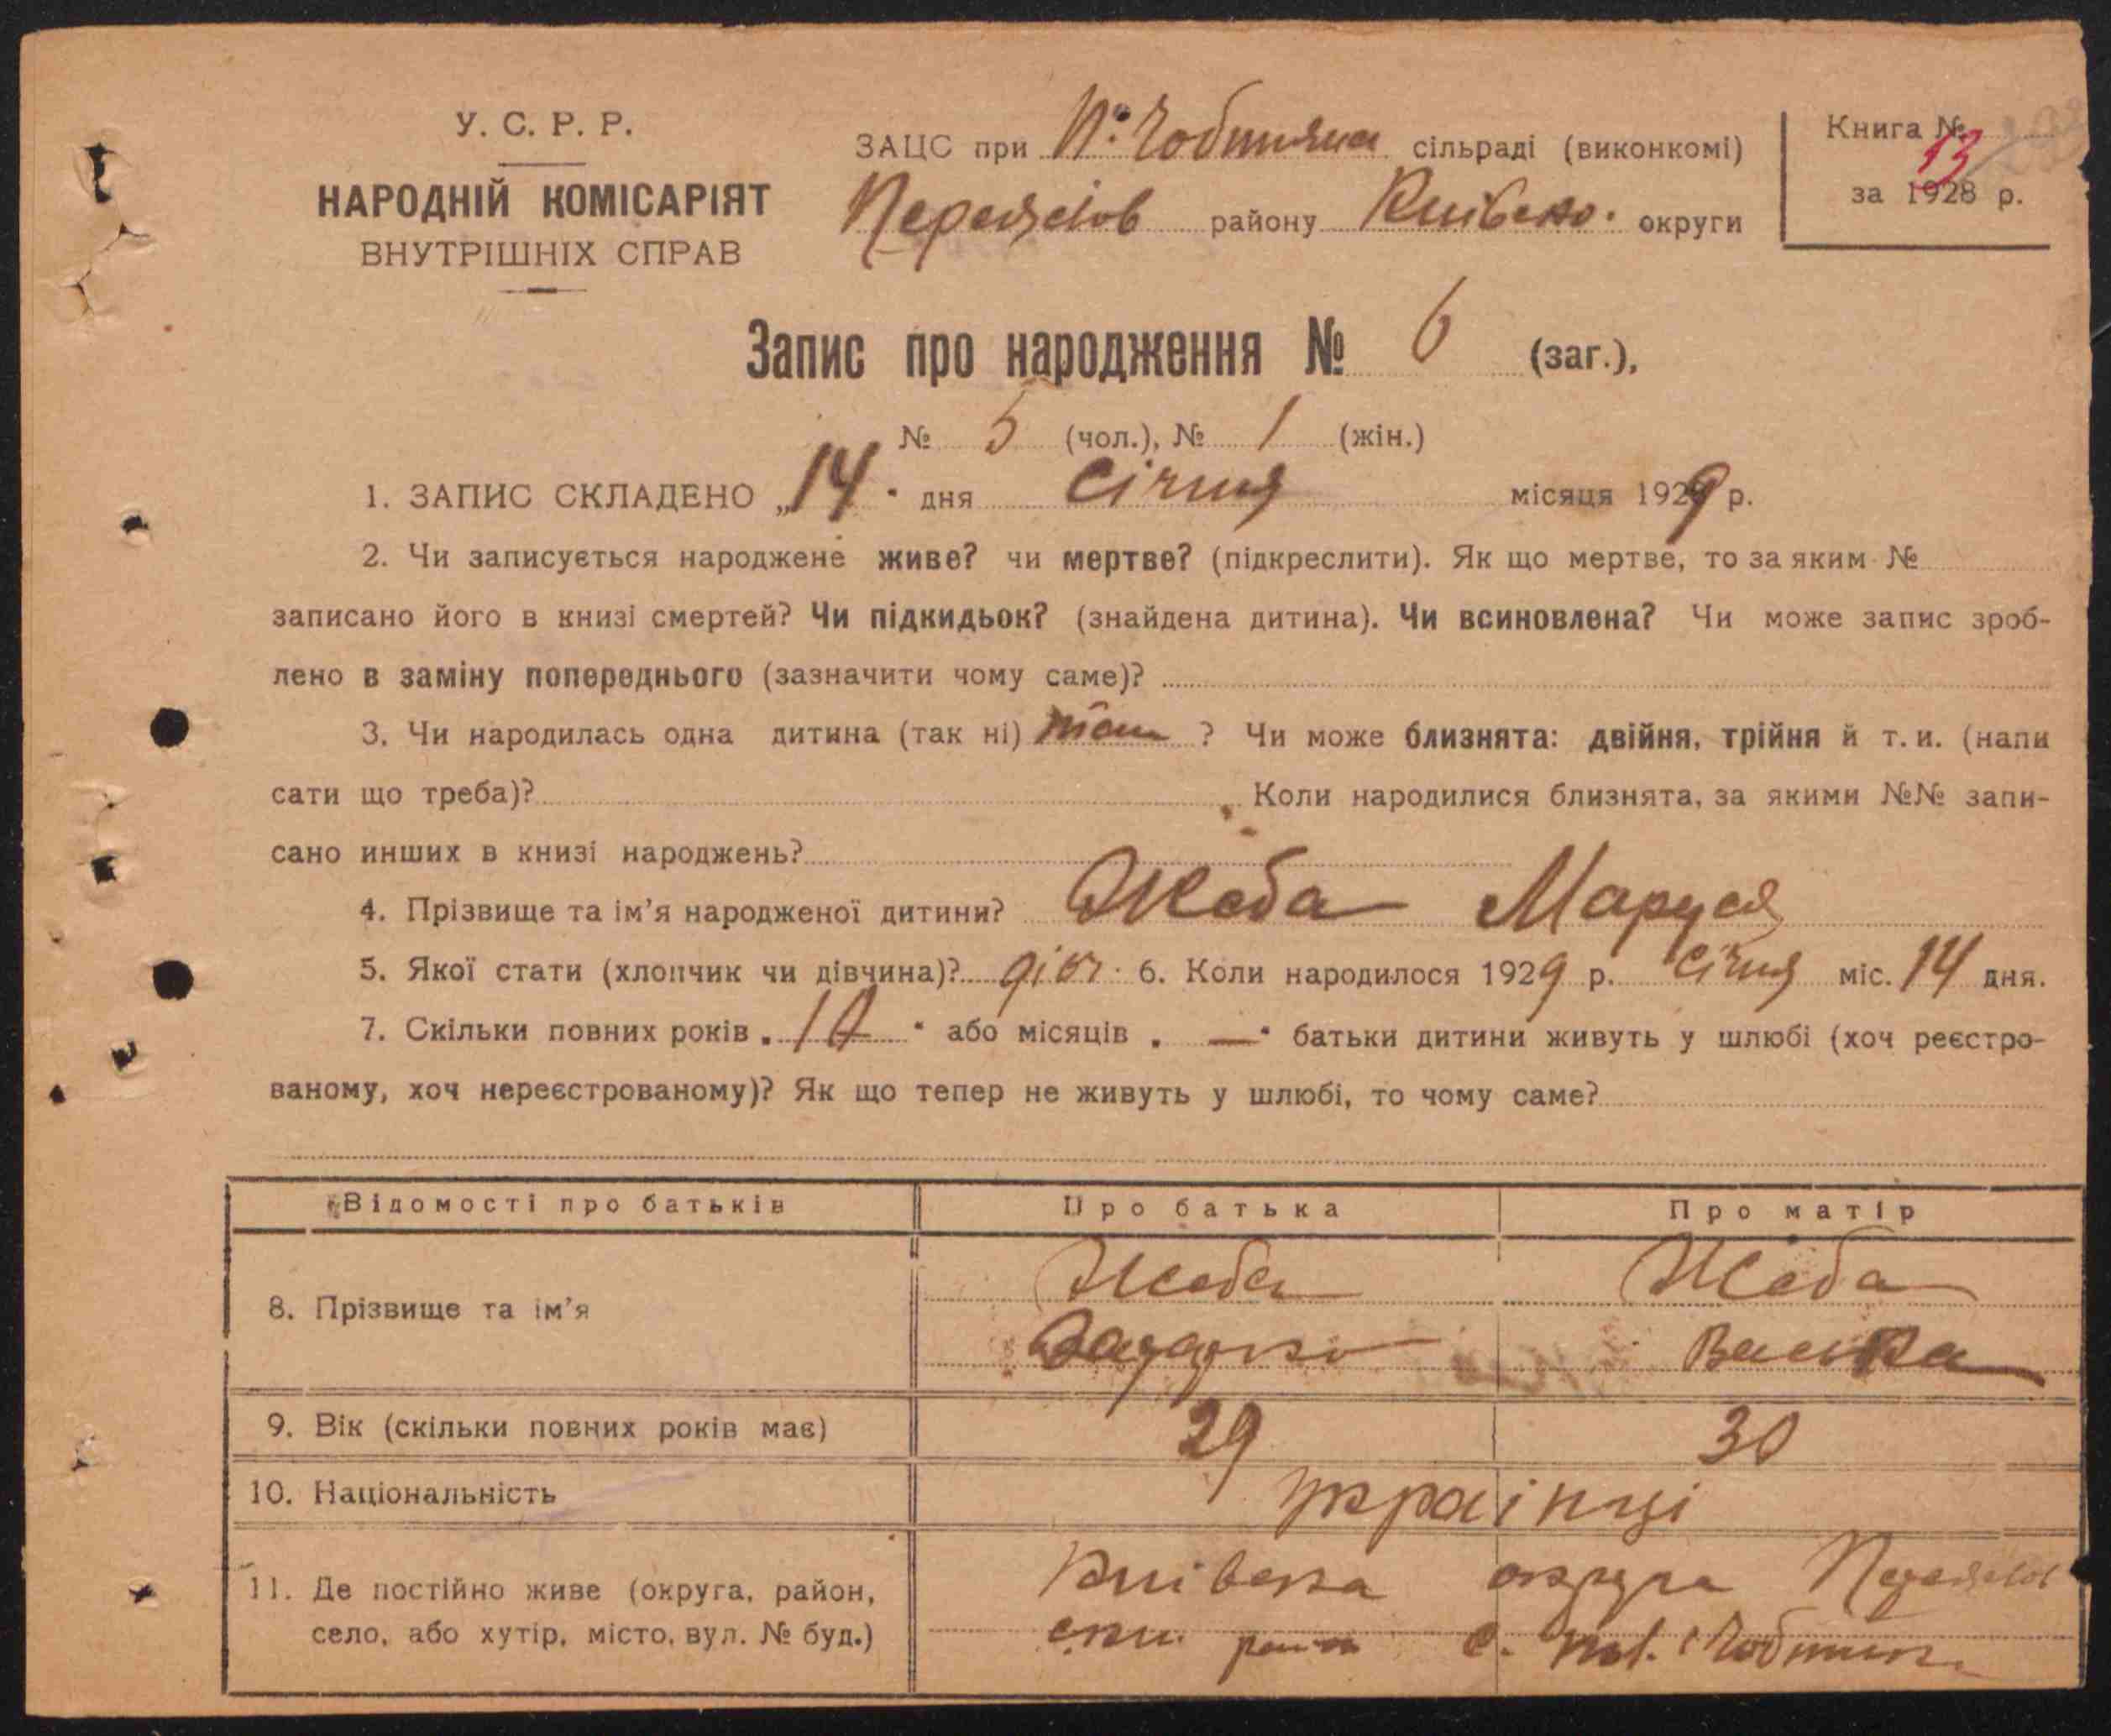 У. С. Р. Р.
НАРОДНІЙ КОМІСАРІЯТ
ВНУТРІШНІХ СПРАВ
ЗАЦС при сільраді (виконкомі)
Переяслов району Київсько. округи
Книга № 13
за 1928 р.
Запис про народження № 6 (заг.),
№ 5 (чол.), № 1 (жін.)
1. ЗАПИС СКЛАДЕНО „14" дня Січня місяця 1929 р.
2. Чи записується народжене живе? чи мертве? (підкреслити). Як що мертве, то за яким №
записано його в книзі смертей? Чи підкидьок? (знайдена дитина). Чи всиновлена? Чи може запис зроб-
лено в заміну попереднього (зазначити чому саме)?
3. Чи народилась одна дитина (так ні) так ? Чи може близнята: двійня, трійня й т. и. (напи
сати що треба)? Коли народилися близнята, за якими №№ запи-
сано инших в книзі народжень?
4. Прізвище та ім'я народженої дитини? Жаба Маруся
5. Якої стати (хлопчик чи дівчина)? дівч. 6. Коли народилося 1929 р. Січня міс. 14 дня.
7. Скільки повних років „ " або місяців „ —" батьки дитини живуть у шлюбі (хоч реєстро-
ваному, хоч нереєстрованому)? Як що тепер не живуть у шлюбі, то чому саме?
Відомості про батьків Про батька Про матір
8. Прізвище та ім'я Жаба Жаба
9. Вік (скільки повних років має) 29 30
10. Національність українці
11. Де постійно живе (округа, район, Київська округа Переяслов
село, або хутір, місто, вул. № буд.) ский район с.